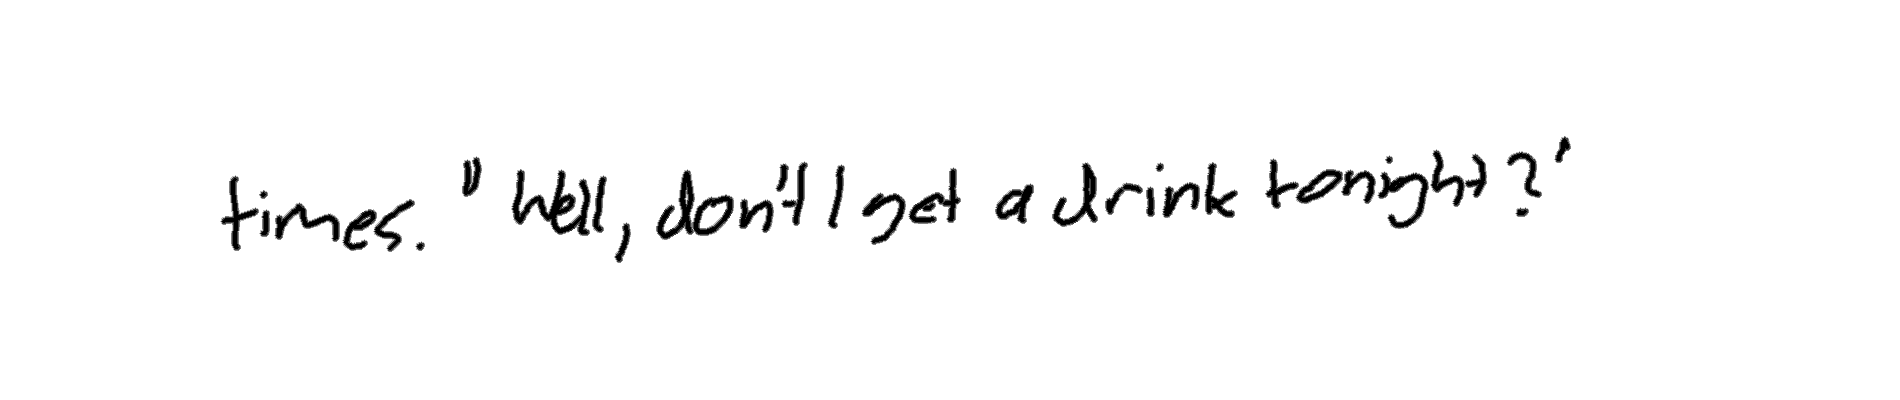 times. "Well, don't I get a drink tonight?'